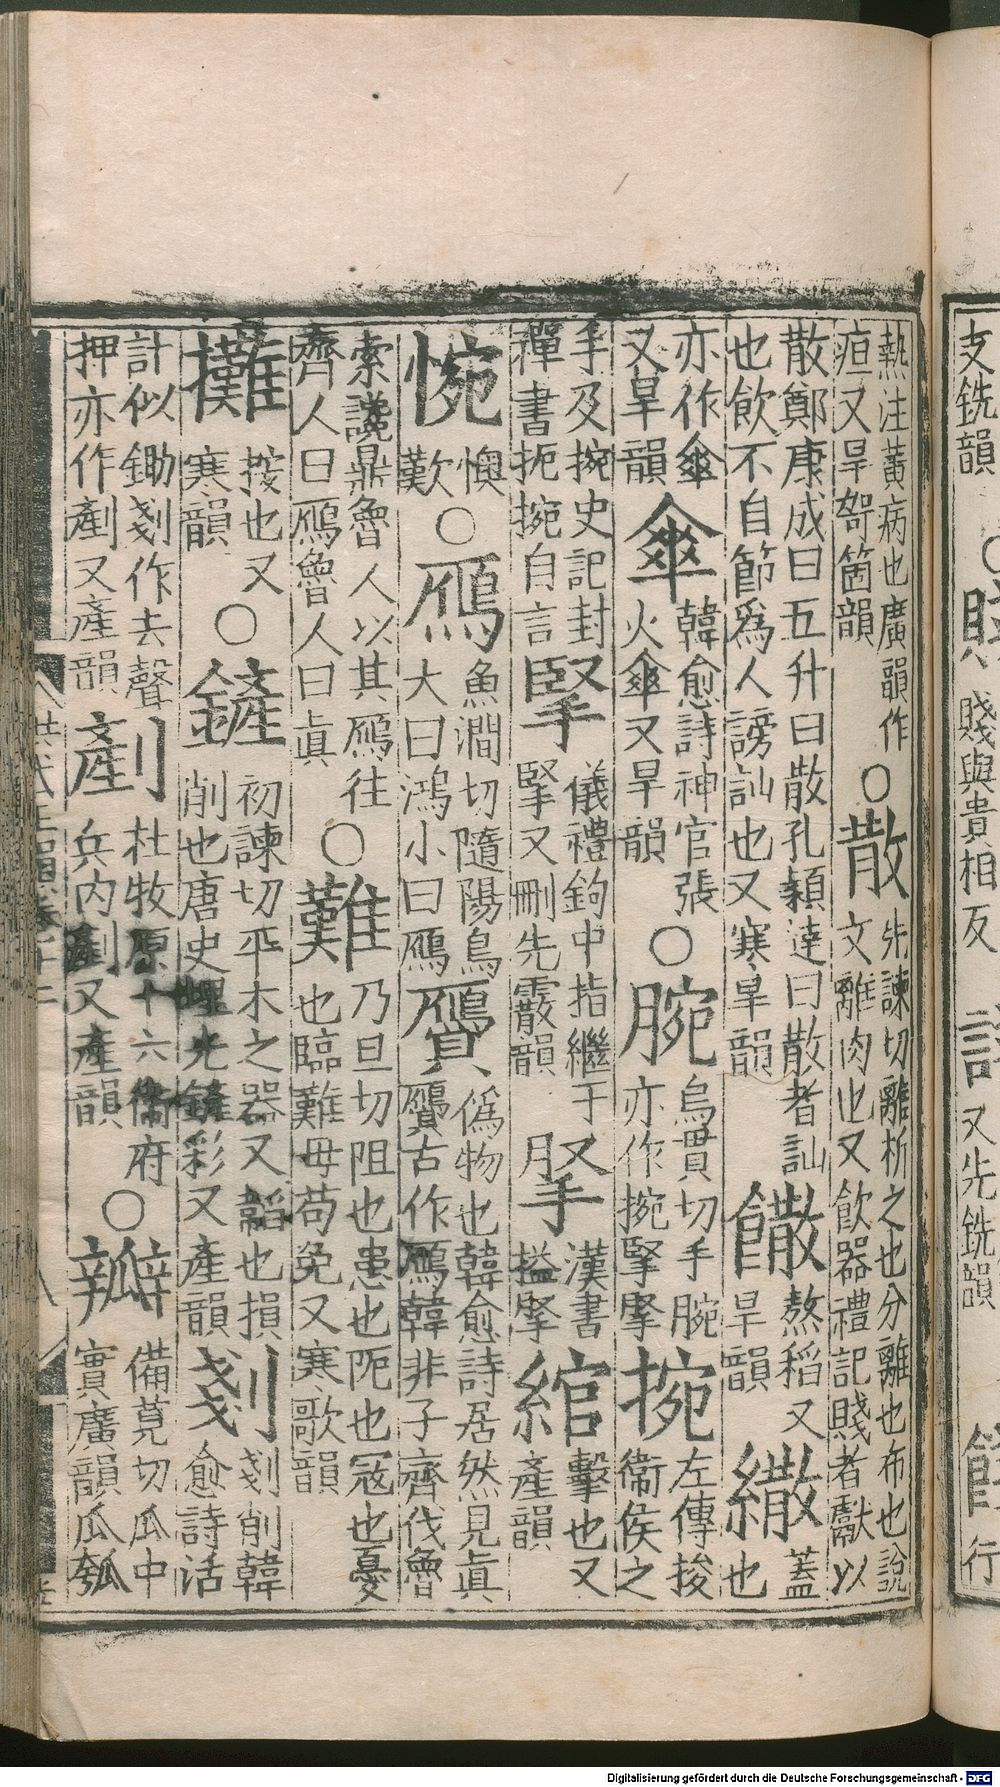 支銑韻
賤與貴相反
又先銑韻
行
熱注黃病也廣韻作
疸又旱哿箇韻
○散
先諫切離析之也分離也布也說
文離肉也又飲器禮記賤者獻以
散鄭康成曰五升曰散孔穎達曰散者訕
也飲不自節爲人謗訕也又寒旱韻
饊
熬稻又
旱韻
繖
蓋
也
亦作傘
又旱韻
傘
韓愈詩神官張
火傘又旱韻
○腕
烏貫切手腕
亦作捥掔㨤
捥
左傳捘
衞侯之
手及捥史記封
禪書扼捥自言
掔
儀禮鉤中指繼于
掔又刪先霰韻
漢書
搤掔
綰
擊也又
產韻
惋
懊
歎
○鴈
魚澗切隨陽鳥
大曰鴻小曰鴈
贗
僞物也韓愈詩居然見眞
贗古作鴈韓非子齊伐魯
索讒鼎魯人以其鴈往
齊人曰鴈魯人曰眞
○難
乃旦切阻也患也阨也寇也憂
也臨難毋苟免又寒歌韻
攤
按也又
寒韻
○鏟
初諫切平木之器又韜也損
削也唐史鏟光鏟彩又產韻
剗
剗削韓
愈詩活
計似鋤剗作去聲
押亦作剷又產韻
剷
杜牧原十六衞府
兵內剷又產韻
○瓣
備莧切瓜中
實廣韻瓜瓠
Digitalisierung gefördert durch die Deutsche Forschungsgemeinschaft - DFG